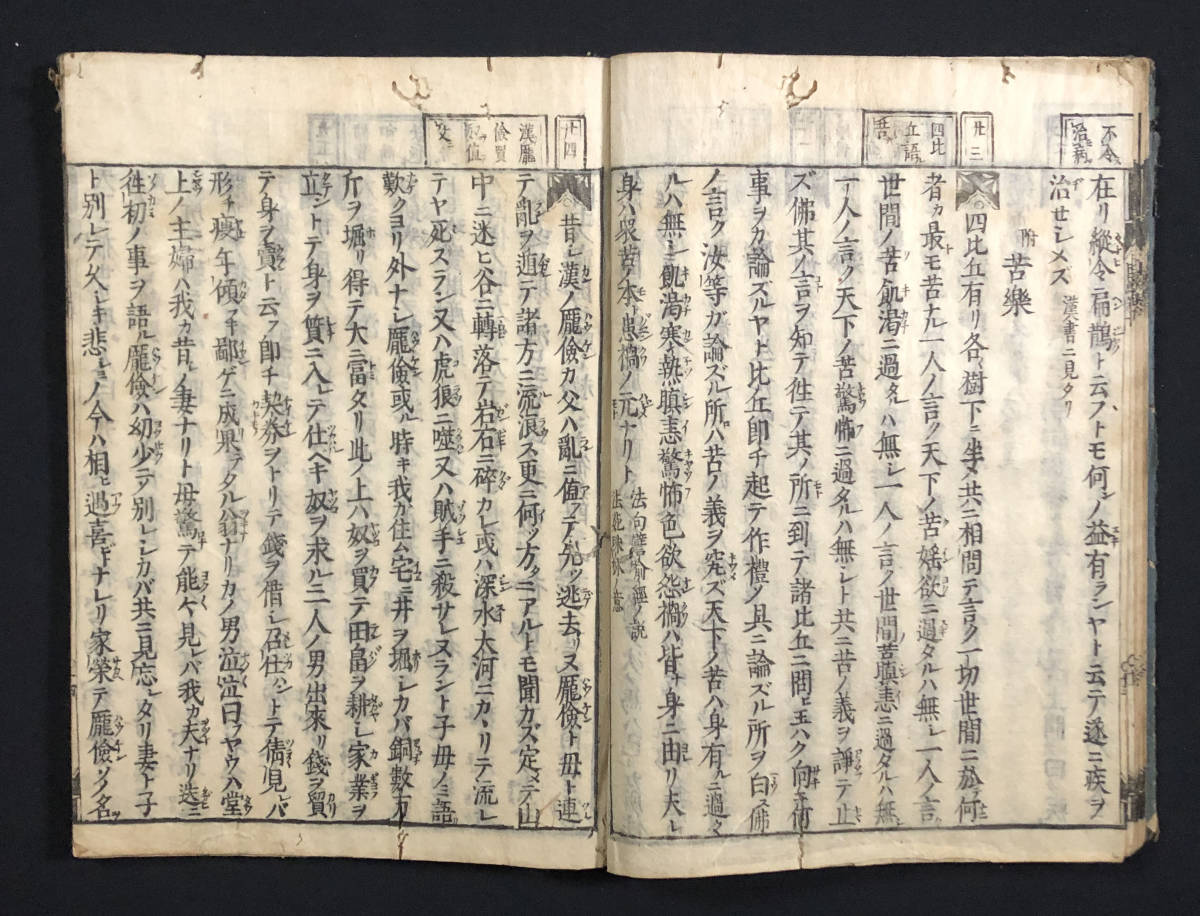 不令
治病
在リ縱令ニ扁鵲ト云フトモ何ンノ益有ランヤト云テ遂ニ疾ヲ
治セシメズ 漢書ニ見タリ
附 苦樂
廿三
四比
丘語
吾
四比丘有リ各樹下ニ坐メ共ニ相問テ言ク一切世間ニ於テ何
者カ最モ苦ナル一人ノ言ク天下ノ苦婬欲ニ過タルハ無シ一人ノ言ク
世間ノ苦飢渇ニ過タルハ無シ一人ノ言ク世間ノ苦瞋恚ニ過タルハ無シ
一人ノ言ク天下ノ苦驚怖ニ過タルハ無シト共ニ苦ノ義ヲ諍テ止
ズ佛其ノ言ヲ知テ往テ其ノ所ニ到テ諸比丘ニ問ヒ玉ハク向キニ何
事ヲカ論ズルヤト比丘即チ起テ作禮シ具ニ論ズル所ヲ白ス佛
ノ言ク汝等ガ論ズル所ハ苦ノ義ヲ究ズ天下ノ苦ハ身有ルニ過タ
ルハ無シ飢渇寒熱瞋恚驚怖色欲怨禍ハ皆ナ身ニ由リ夫レ
身ハ衆苦ノ本ト患禍ノ元ナリト 法句譬喩經ノ説
廿四
漢龐
儉買
奴値
父
昔シ漢ノ龐儉カ父ハ亂ニ値テ先ツ逃去リヌ龐儉ト母ト連
テ亂ヲ遁テ諸方ニ流浪ス更ニ何ツ方タニアルトモ聞カズ定メテ山
中ニ迷ヒ谷ニ轉落テ岩石ニ碎カレ或ハ深水大河ニカヽリテ流レ
テヤ死スラン又ハ虎狼ニ噬又ハ賊手ニ殺サレヌラント子母ノミ語
歎クヨリ外ナシ龐儉或ル時キ我カ住ム宅ニ井ヲ堀シカバ銅數万
斤ヲ堀リ得テ大ニ富タリ此ノ上ハ奴ヲ買テ田畠ヲ耕シ家業ヲ
立ントテ身ヲ質ニ入レテ仕ヘキ奴ヲ求ルニ人ノ男出來リ錢ヲ貿
テ身ヲ賣ト云フ即チ契券ヲトリテ錢ヲ借シ召仕ハントテ倩見レバ
形チ瘦年傾フキ鄙ゲニ成果ヲタル翁ナリカノ男泣泣曰フヤウハ堂
上ノ主婦ハ我カ昔シノ妻ナリト母驚テ能ク々見レバ我カ夫ナリ迭ニ
往初ノ事ヲ語ル龐儉ハ幼少テ別レシカバ共ニ見忘レタリ妻ト子
ト別レテ久シキ悲シミノ今ハ相ヒ遇喜ビトナレリ家榮テ龐儉ソノ名